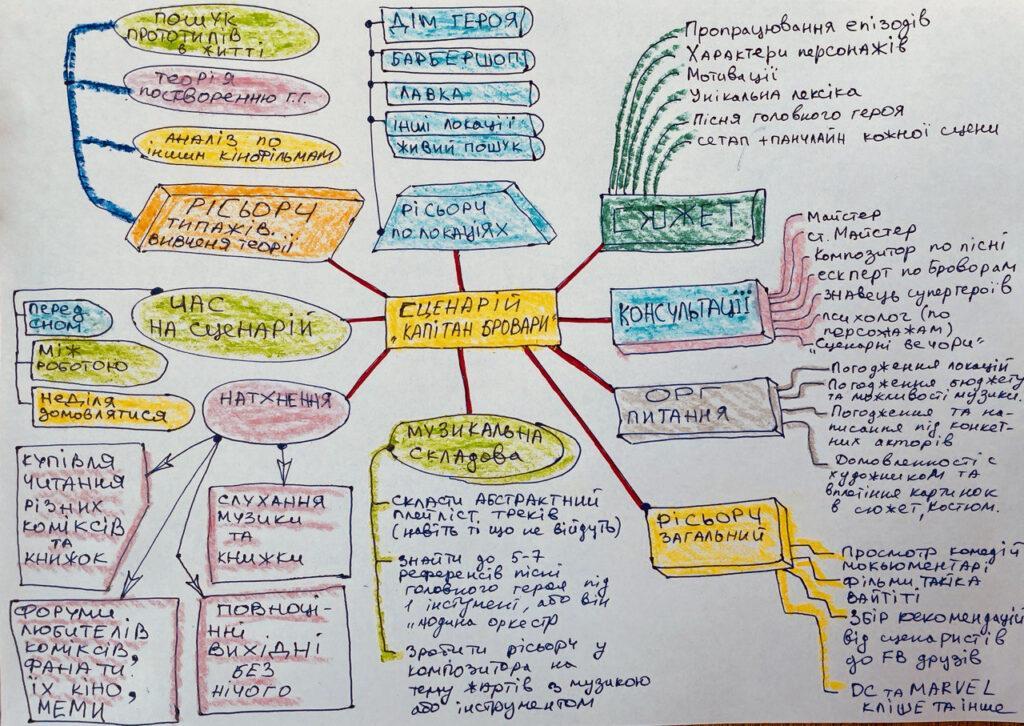 ПОШУК
ПРОТОТИПІВ
В ЖИТТІ
ТЕОРІЯ
ПОСТВОРЕННЮ Г.Г.
АНАЛІЗ ПО
ІНШИМ КІНОФІЛЬМАМ
РІСЬОРЧ
ТИПАЖІВ.
ВИВЧЕНЯ ТЕОРІЇ
ДІМ ГЕРОЯ
БАРБЕРШОП
ЛАВКА
ІНШІ ЛОКАЦІЇ
ЖИВИЙ ПОШУК
РІСЬОРЧ
ПО ЛОКАЦІЯХ
Пропрацювання епізодів
Характери персонажів
Мотивації
Унікальна лексіка
Пісня головного героя
сетап + панчлайн кожної сцени
СЮЖЕТ
СЦЕНАРІЙ
"КАПІТАН БРОВАРИ"
КОНСУЛЬТАЦІЇ
Майстер
ст. Майстер
Композитор по пісні
ескперт по Броварам
Знавець супергероїв
психолог (по
персонажам)
„Сценарні вечори"
ЧАС
НА СЦЕНАРІЙ
ПЕРЕД
СНОМ
МІЖ
РОБОТОЮ
НЕДІЛЯ
ДОМОВЛЯТИСЯ
ОРГ
ПИТАННЯ
Погодження локацій
Погодження бюджету
та можливості музики.
Погодження та на-
писання під конкет-
них акторів
Домовленності с
художником та
вплетіння картинок
в сюжет, костюм.
НАТХНЕННЯ
КУПІВЛЯ
ЧИТАННЯ
РІЗНИХ
КОМІКСІВ
ТА
КНИЖОК
СЛУХАННЯ
МУЗИКИ
ТА
КНИЖКИ
ФОРУМИ
ЛЮБИТЕЛІВ
КОМІКСІВ,
ФАНАТИ.
ЇХ КІНО,
МЕМИ
ПОВНОЦІ-
ННІ
ВИХІДНІ
БЕЗ
НІЧОГО
МУЗИКАЛЬНА
СКЛАДОВА
СКЛАСТИ АБСТРАКТНИЙ
ПЛЕЙЛІСТ ТРЕКІВ
(НАВІТЬ ТІ ЩО НЕ ВІЙДУТЬ)
ЗНАЙТИ ДО 5-7
РЕФЕРЕНСІВ ПІСНІ
ГОЛОВНОГО ГЕРОЯ ПІД
1 ІНСТУМЕНТ, АБО ВІН
„ЛЮДИНА ОРКЕСТР
ЗРОБИТИ РІСЬОРЧ У
КОМПОЗИТОРА НА
ТЕМУ ЖАРТІВ З МУЗИКОЮ
АБО ІНСТРУМЕНТОМ
РІСЬОРЧ
ЗАГАЛЬНИЙ
Просмотр комедій
мокьюментарі
фільми. Такіка
Вайтіті
Збір рекомендацій
від сценаристів
до FB друзів
DC та MARVEL
КЛІШЕ ТА ІНШЕ